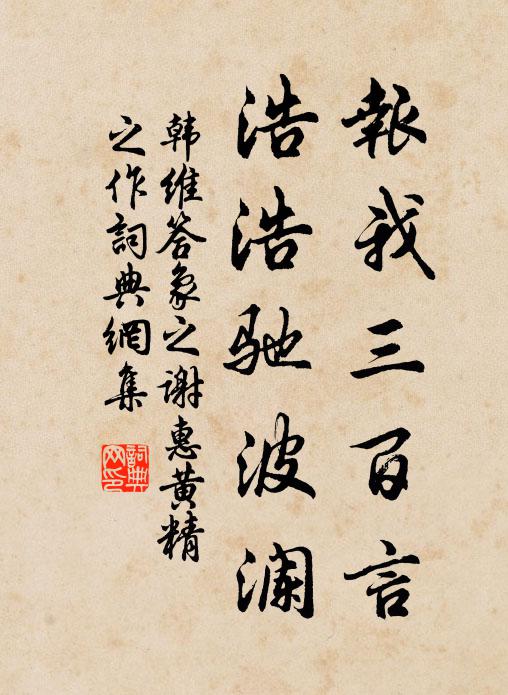 報我三百言
浩浩馳波瀾
韩維答象之谢惠黄精
之作詞典網集
詞典网印